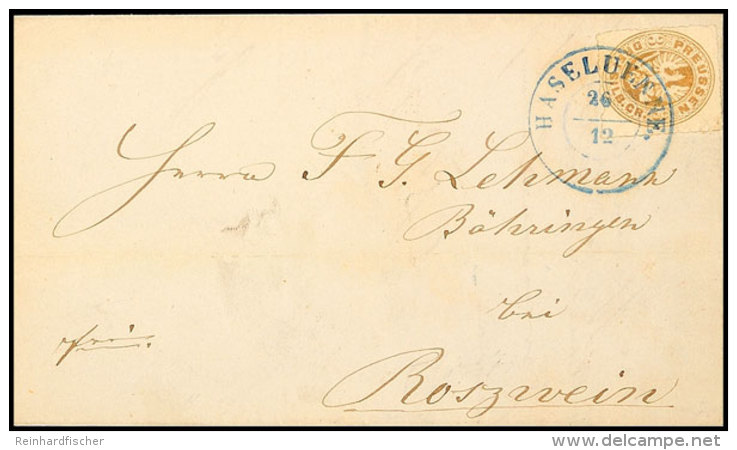 PREUSSEN
HASELUENNE
26
12
Herrn F. G. Lehmann
Böhringen
bei
frei.
Roszwein
Reinhardfischer
delcampe.net